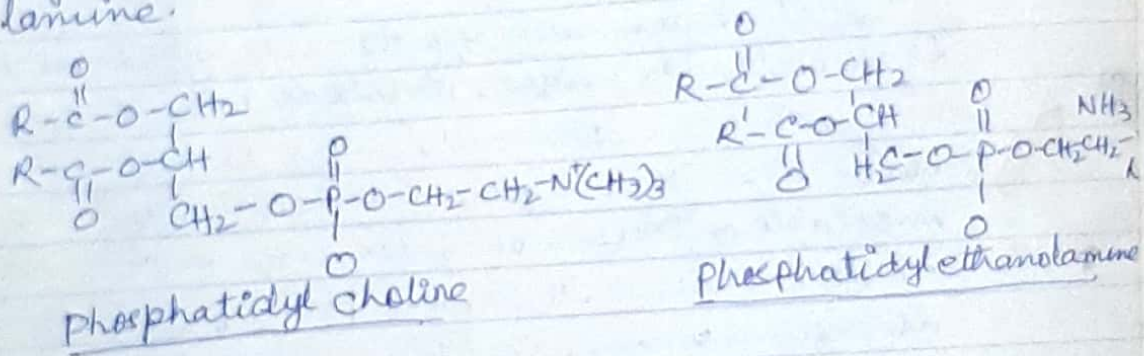 O
R-C-O-CH2
R-C-O-CH
O
CH2-O-P-O-CH2-CH2-N+(CH3)3
O
O
Phosphatidyl choline
O
R-C-O-CH2
R'-C-O-CH
O
H2C-O-P-O-CH2CH2-
O
NH3
O
Phosphatidyl ethanolamine